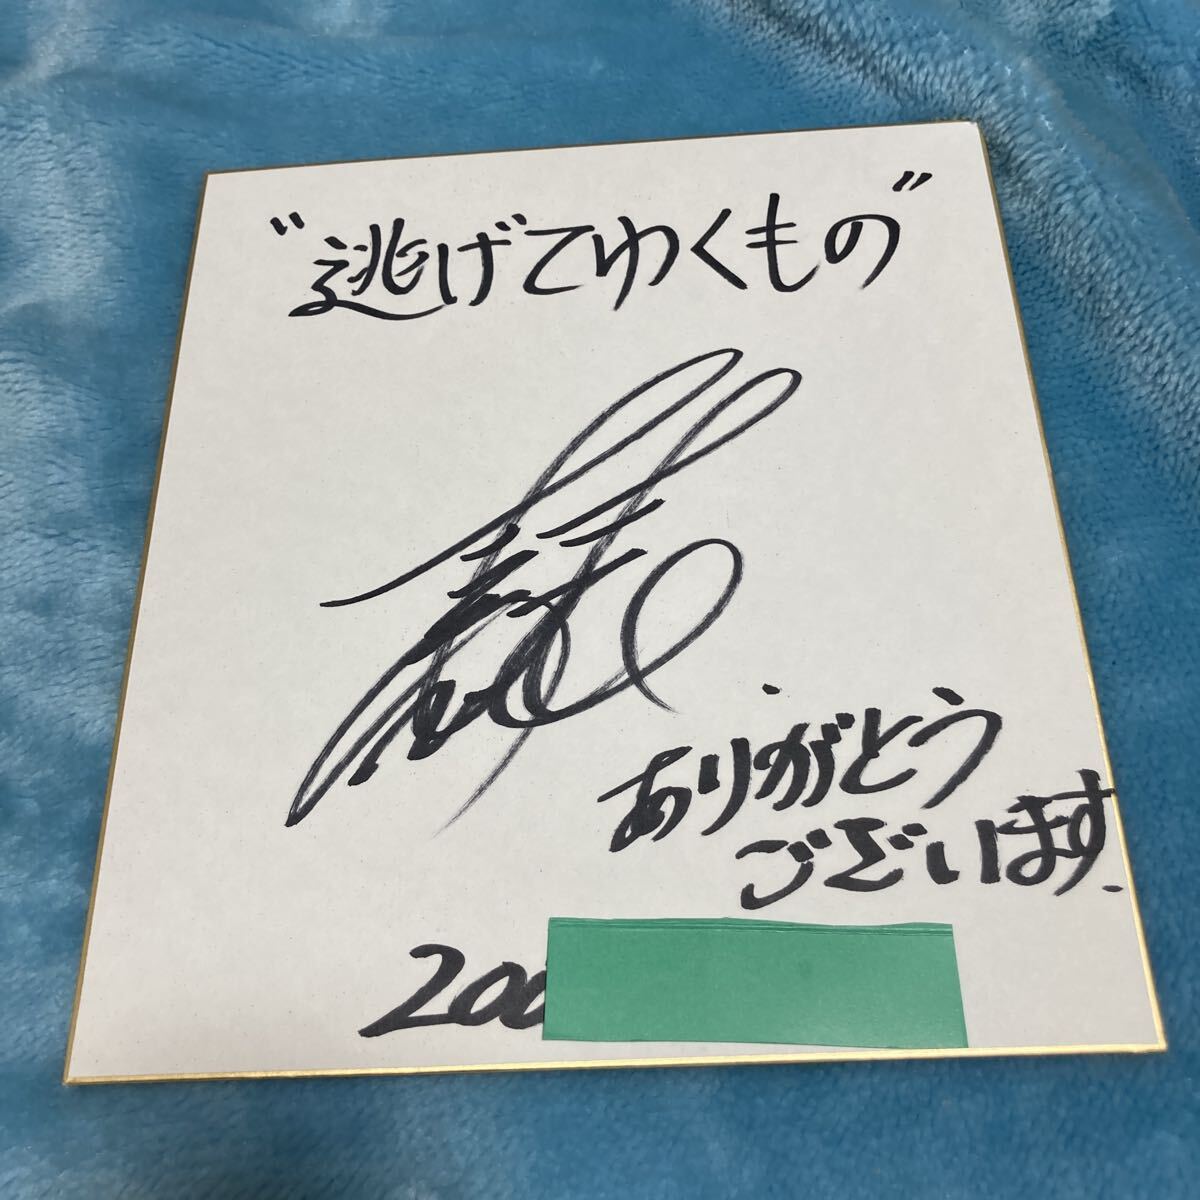 "逃げてゆくもの"
ありがとう
ございます.
200